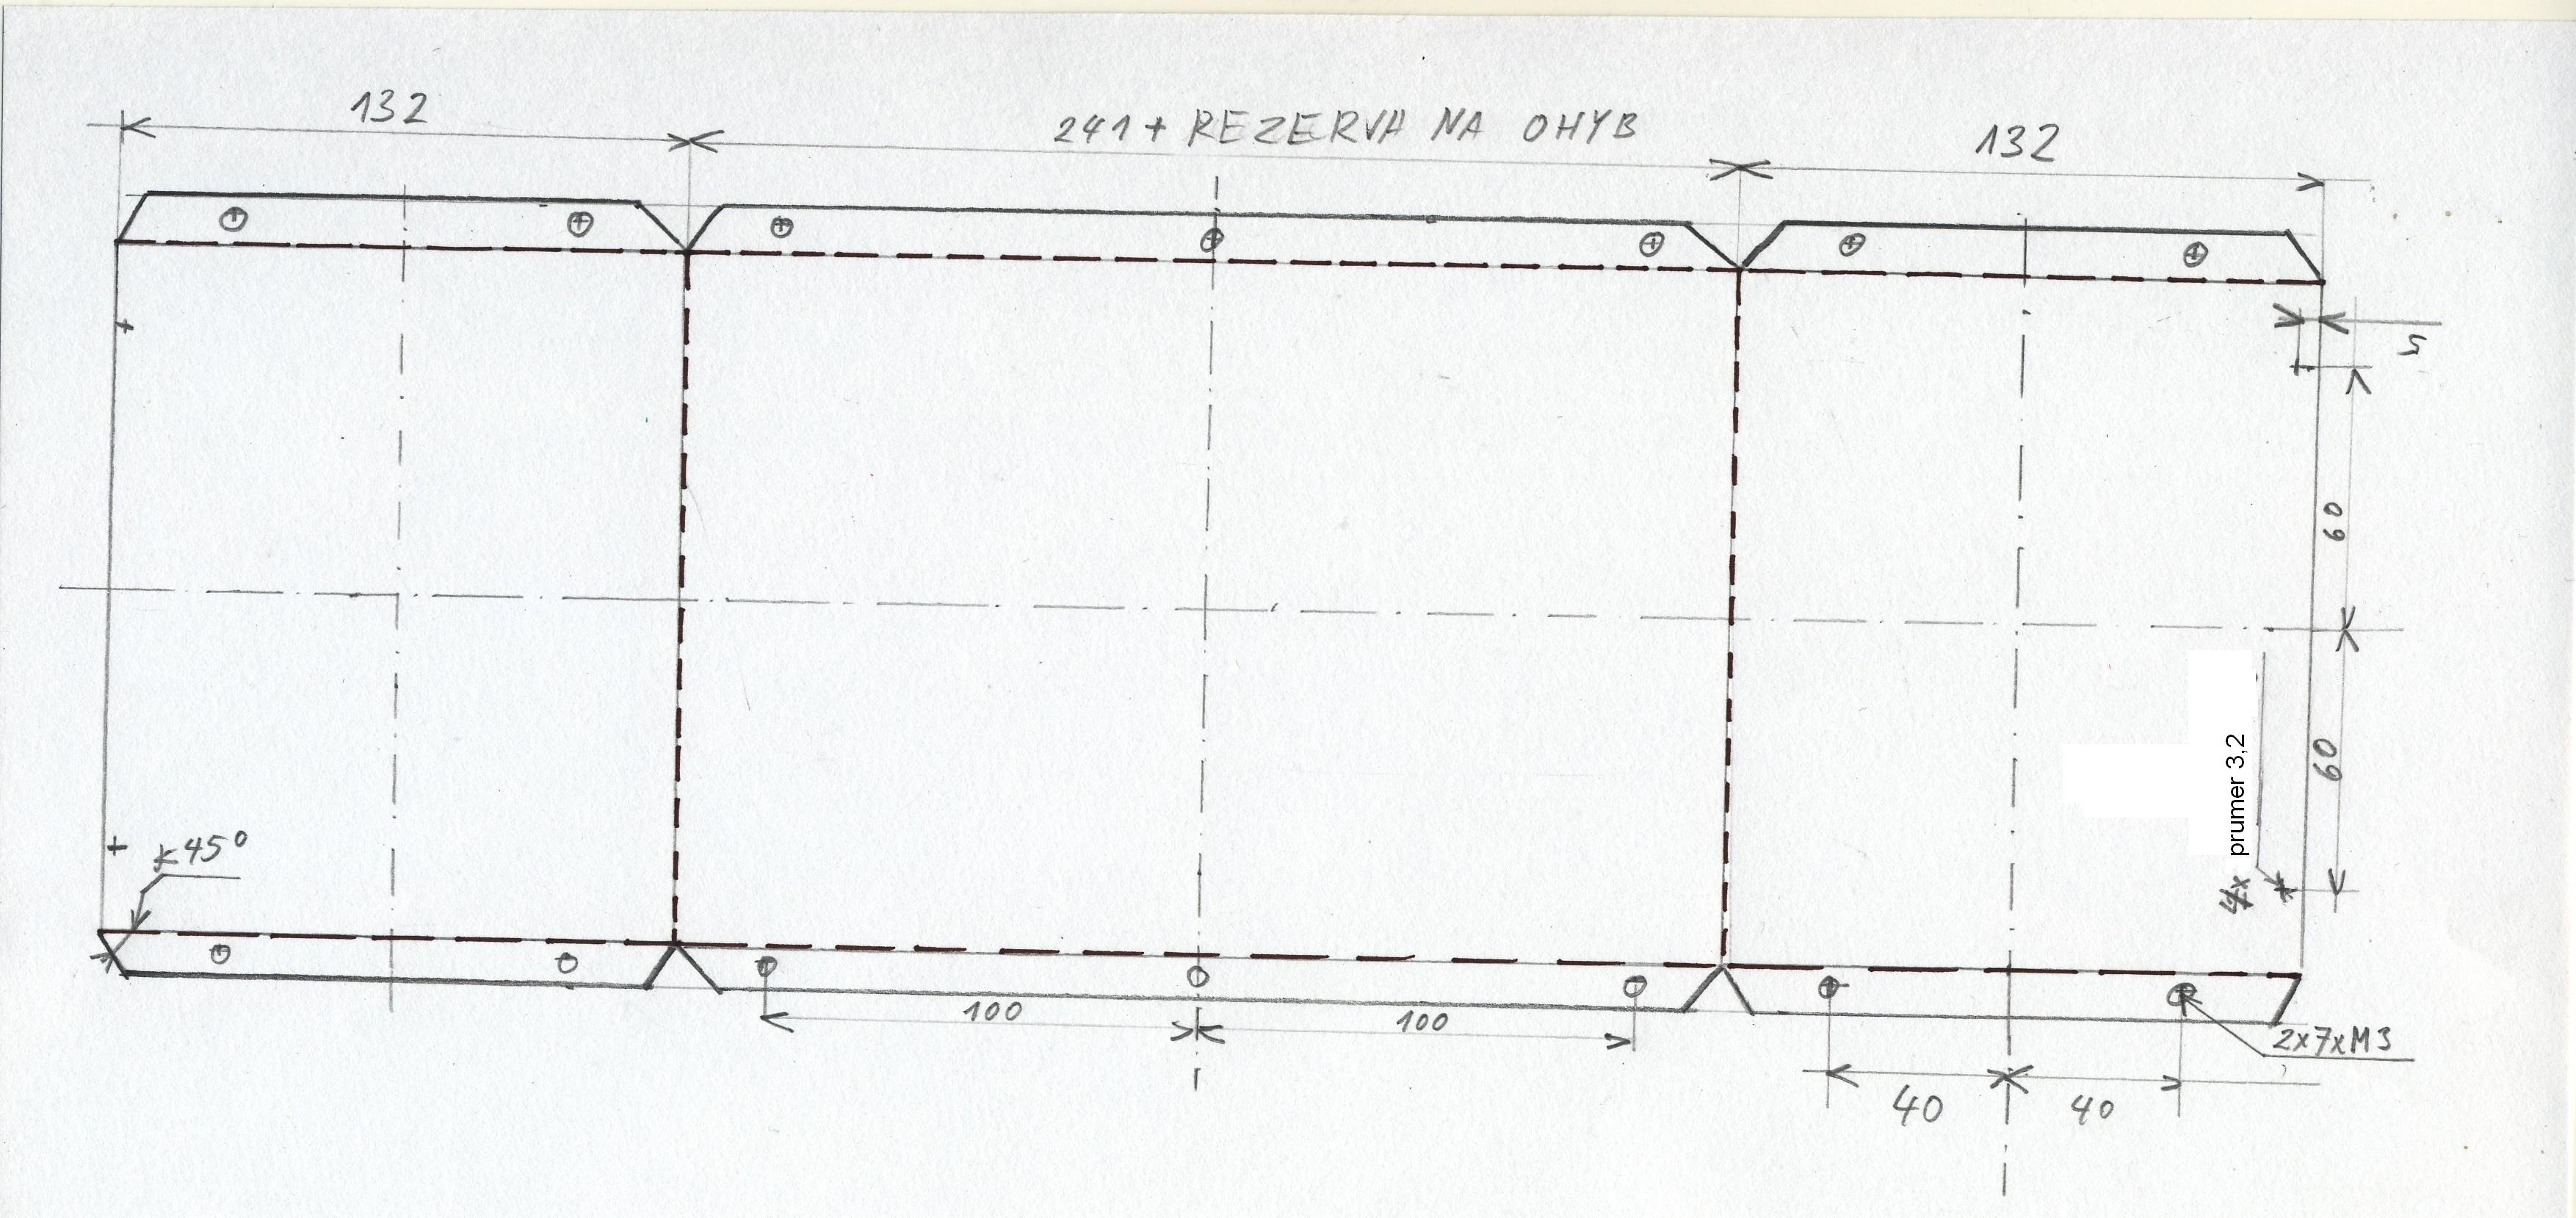 132
241 + REZERVA NA OHYB
132
5
60
60
prumer 3,2
4x
∢45°
100
100
2x7xM3
40
40